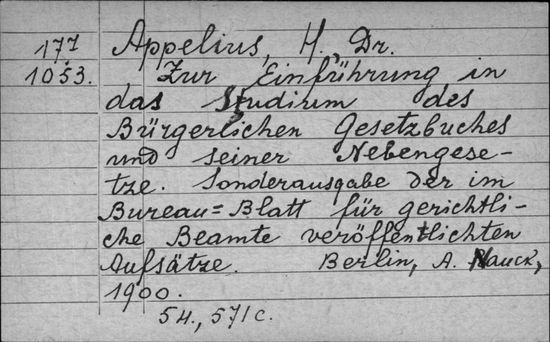 177
1053.
Appelius, H., Dr.
Zur Einführung in
das Studium des
Bürgerlichen Gesetzbuches
und seiner Nebengese-
tze. Sonderausgabe der im
Bureau=Blatt für gerichtli-
che Beamte veröffentlichten
Aufsätze. Berlin, A. Nauck,
1900.
54., 571 c.